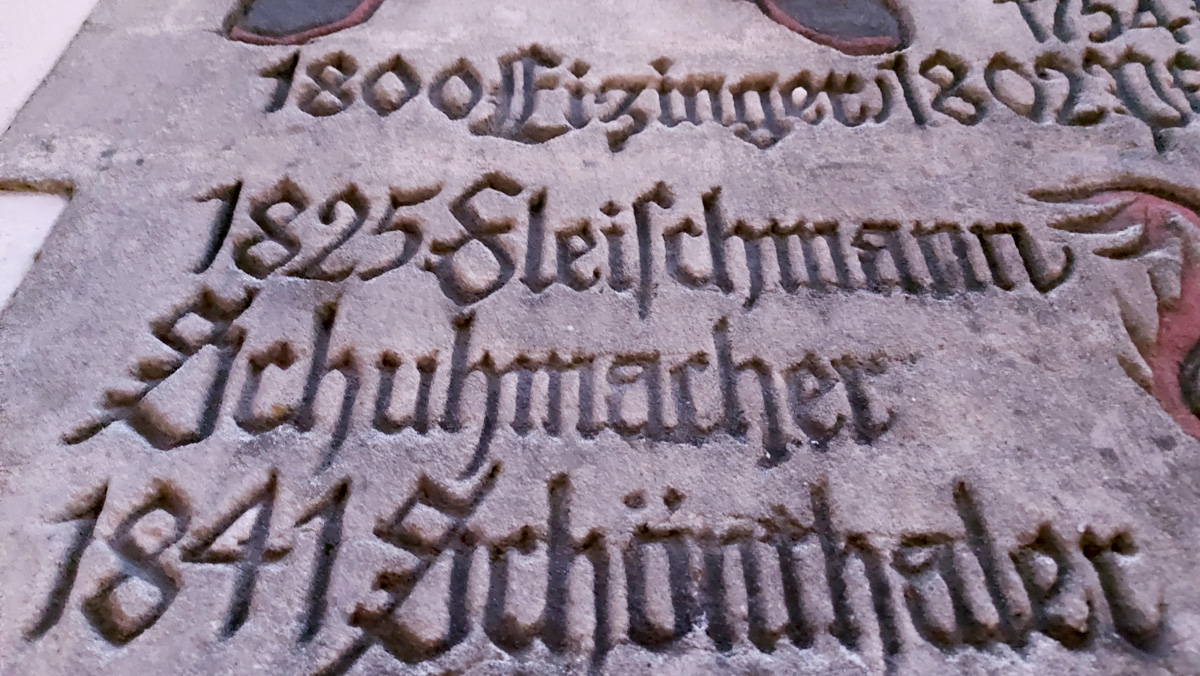 1754
1800 Eizinger 1802
1825 Fleischmann
Schuhmacher
1841 Schönthaler